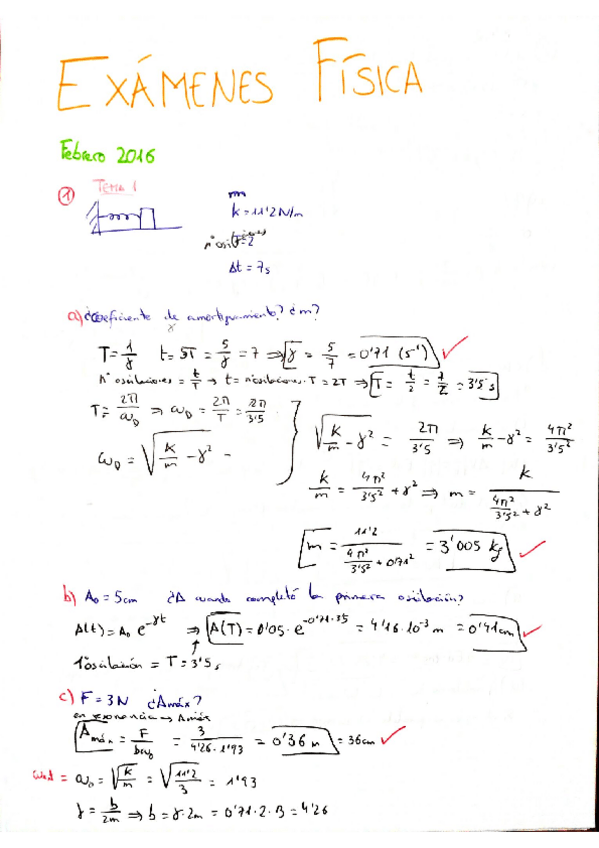 EXÁMENES FÍSICA
Febrero 2016
① Tema 1
m
k = 11'2 N/m
nº oscilaciones = 2
Δt = 7s
a) ¿Coeficiente de amortiguamiento? ¿m?
γ
τ = 1/γ t = 5τ = 5/γ = 7 ⇒ γ = 5/7 = 0'71 (s⁻¹) ✓
nº oscilaciones = t/T → t = nºoscilaciones · T = 2T ⇒ T = t/2 = 7/2 = 3'5 s
T = 2π/ω_D ⇒ ω_D = 2π/T = 2π/3'5
ω_D = √(k/m − γ²)
√(k/m − γ²) = 2π/3'5 ⇒ k/m − γ² = 4π²/3'5²
k/m = 4π²/3'5² + γ² ⇒ m = k/(4π²/3'5² + γ²)
m = 11'2/(4π²/3'5² + 0'71²) = 3'005 kg ✓
b) A₀ = 5cm ¿A cuando completó la primera oscilación?
A(t) = A₀ e^(−γt) ⇒ A(T) = 0'05 · e^(−0'71·3'5) = 4'16·10⁻³ m = 0'41cm ✓
1ª oscilación = T = 3'5 s
c) F = 3N ¿Amáx?
en resonancia → Amáx
Amáx = F/bω₀ = 3/(4'26 · 1'93) = 0'36 m = 36cm ✓
= ω₀ = √(k/m) = √(11'2/3) = 1'93
γ = b/2m ⇒ b = γ·2m = 0'71·2·3 = 4'26